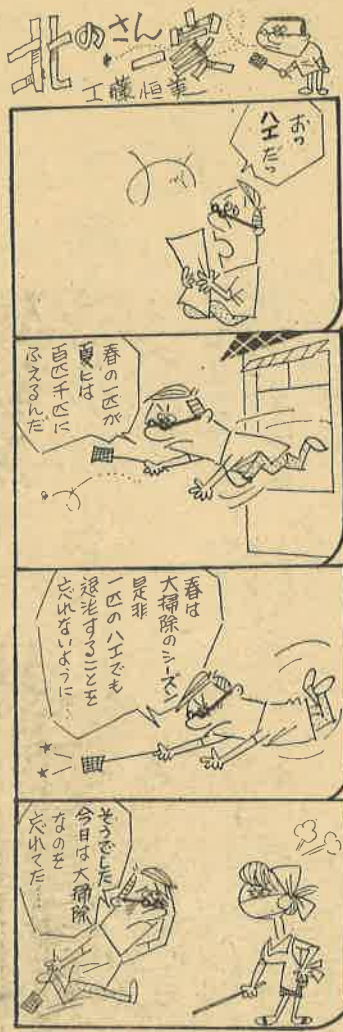 北のさん一家
工藤恒美
おっ
ハエだっ
春の一匹が
夏には
百匹千匹に
ふえるんだ
春は
大掃除のシーズン
是非
一匹のハエでも
退治することを
忘れないように…
そうでした
今日は大掃除
なのを
忘れてた……